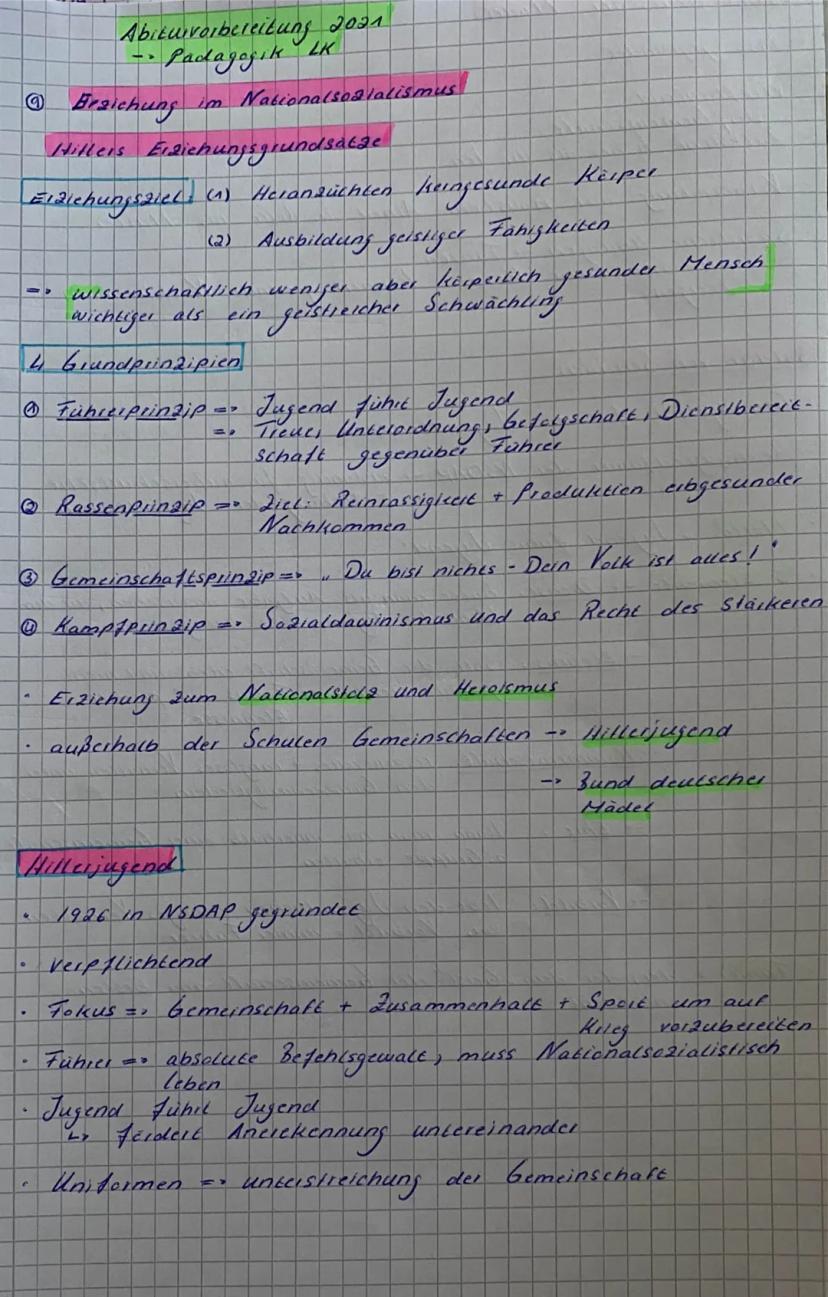 Abiturvorbereitung 2021
-> Pädagogik LK
⑨ Erziehung im Nationalsozialismus
Hitlers Erziehungsgrundsätze
Erziehungsziel: (1) Heranzüchten kerngesunde Körper
(2) Ausbildung geistiger Fähigkeiten
=> wissenschaftlich weniger aber körperlich gesunder Mensch
wichtiger als ein geistreicher Schwächling
4 Grundprinzipien
① Führerprinzip => Jugend führt Jugend
=> Treue, Unterordnung, Gefolgschaft, Dienstbereit-
schaft gegenüber Führer
② Rassenprinzip => Ziel: Reinrassigkeit + Produktion erbgesunder
Nachkommen
③ Gemeinschaftsprinzip => „Du bist nichts - Dein Volk ist alles!"
④ Kampfprinzip => Sozialdawinismus und das Recht des Stärkeren
· Erziehung zum Nationalstolz und Heroismus
· außerhalb der Schulen Gemeinschaften -> Hitlerjugend
-> Bund deutscher
Mädel
Hitlerjugend
· 1926 in NSDAP gegründet
· verpflichtend
· Fokus => Gemeinschaft + Zusammenhalt + Sport um auf
Krieg vorzubereiten
· Führer => absolute Befehlsgewalt, muss Nationalsozialistisch
leben
· Jugend führt Jugend
↳ fördert Anerekennung untereinander
· Uniformen => unterstreichung der Gemeinschaft